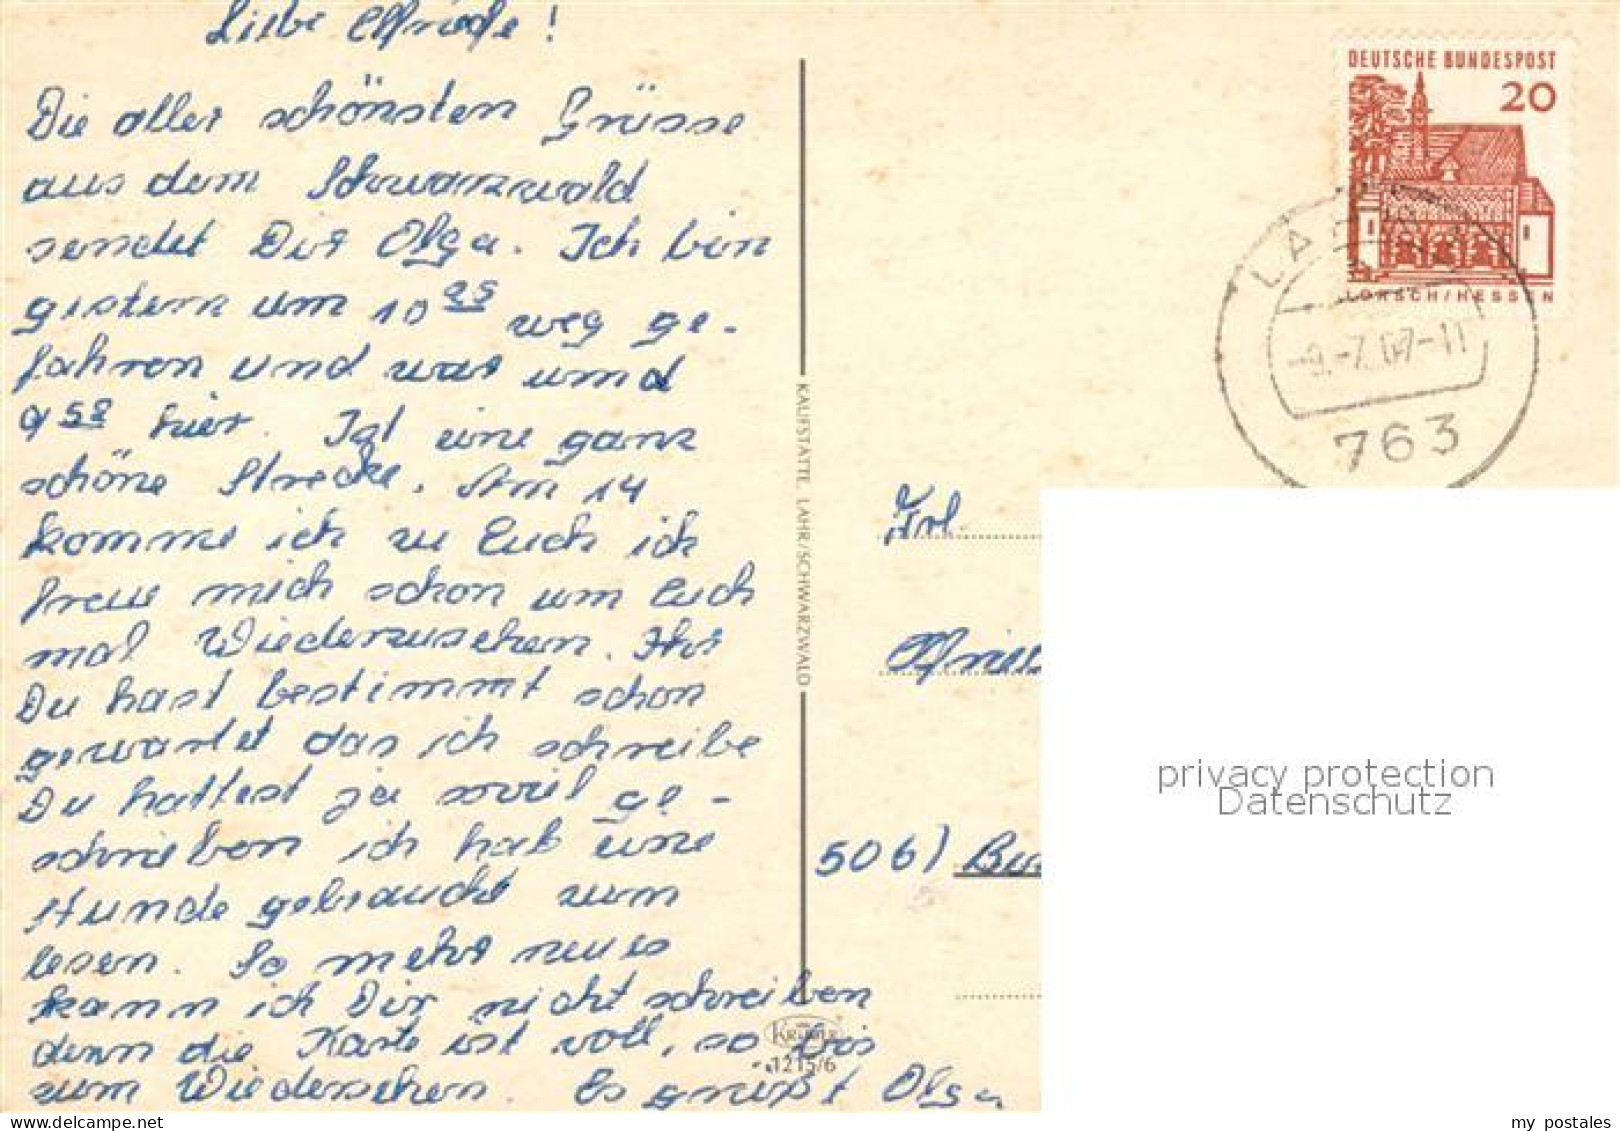 Liebe Elfriede!
Die aller schönsten Grüsse
aus dem Schwarzwald
sendet Dir Olga. Ich bin
gestern um 10 25 weg ge-
fahren und war umd
9 58 hier. Ist eine ganz
schöne Strecke. Am 14
komme ich zu Euch ich
freue mich schon um Euch
mal Wiederzusehen.
Du hast bestimmt schon
gewartet das ich schreibe
Du hattest ja soviel ge-
schrieben ich hab eine
stunde gebraucht zum
lesen. So mehr neues
kann ich Dir nicht schreiben
denn die Karte ist voll, so bis
zum Wiedersehen. Es grüßt Olga
KAUFSTÄTTE LAHR/SCHWARZWALD
KRÜGER
1215/6
DEUTSCHE BUNDESPOST
20
LORSCH/HESSEN
LA
-9.-7.67-11
763
Frl.
Elfried
506)
privacy protection
Datenschutz
my postales